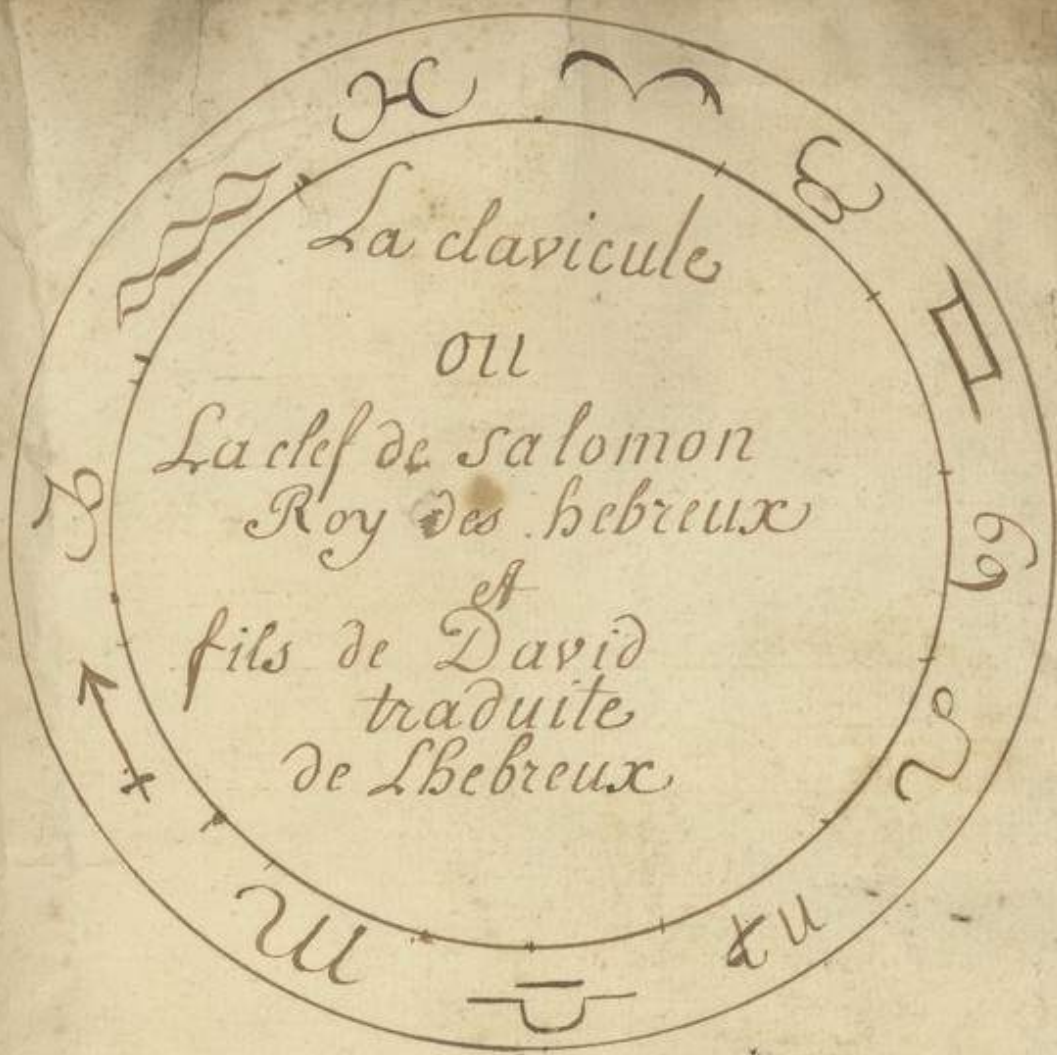 La clavicule
ou
La clef de Salomon
Roy des hebreux
et
fils de David
traduite
de Lhebreux